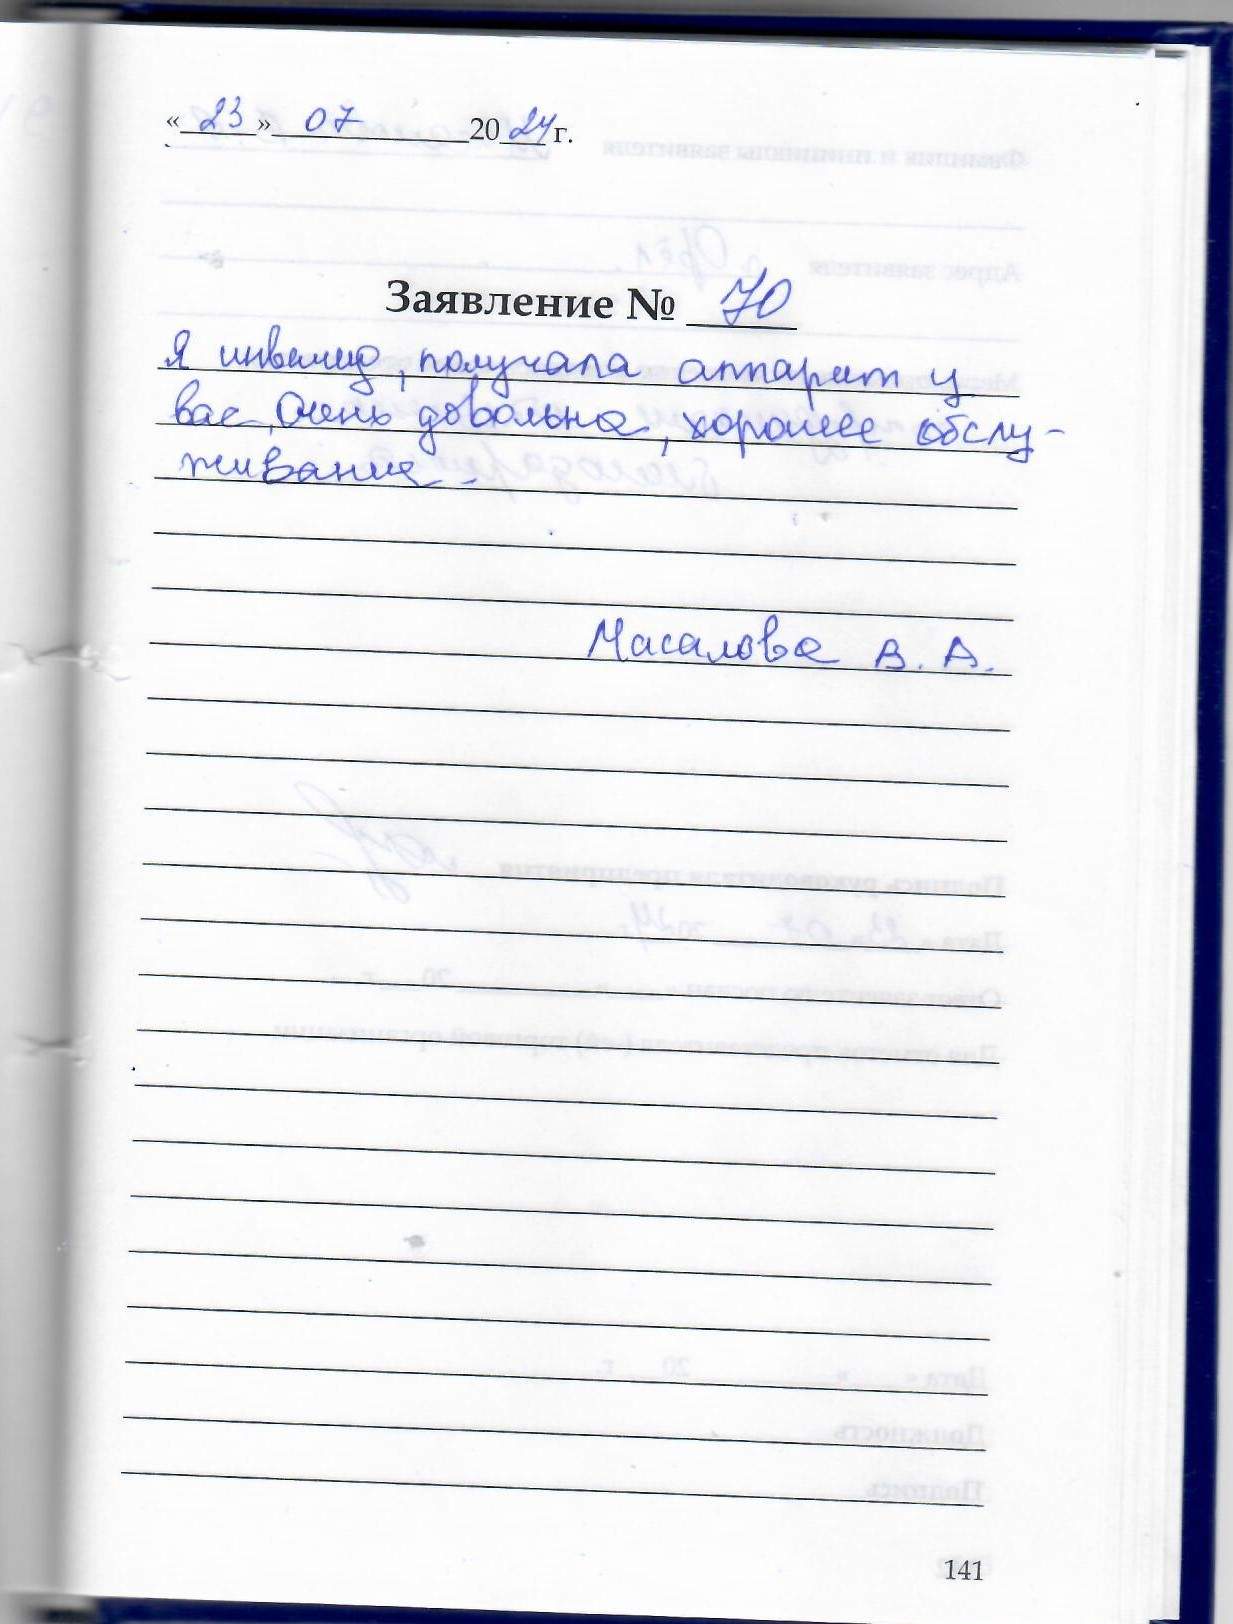 «23» 07 2024 г.
Заявление № 70
Я инвалид, получала аппарат у
вас, Очень довольна, хорошее обслу-
живание.
Масалова В. А.
141